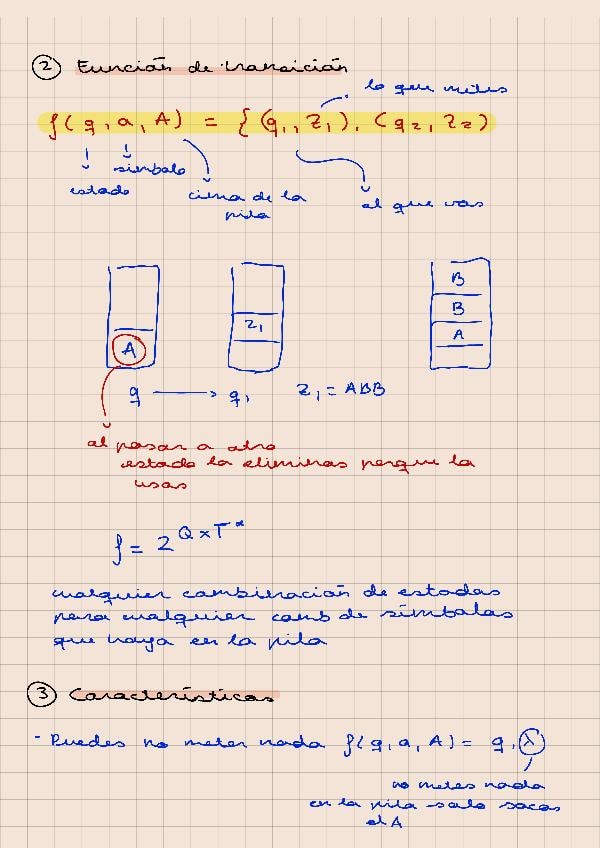 2 Función de transición
lo que metes
f(q, a, A) = {(q1, Z1), (q2, Z2)
símbolo
estado
cima de la
pila
al que vas
B
B
A
Z1
A
q → q1 Z1 = ABB
al pasar a otro
estado la eliminas porque la
usas
f = 2^Q×T*
cualquier combinación de estados
para cualquier comb de símbolos
que haya en la pila
3 Características
- Puedes no meter nada f(q, a, A) = q, λ
no metes nada
en la pila solo sacas
el A